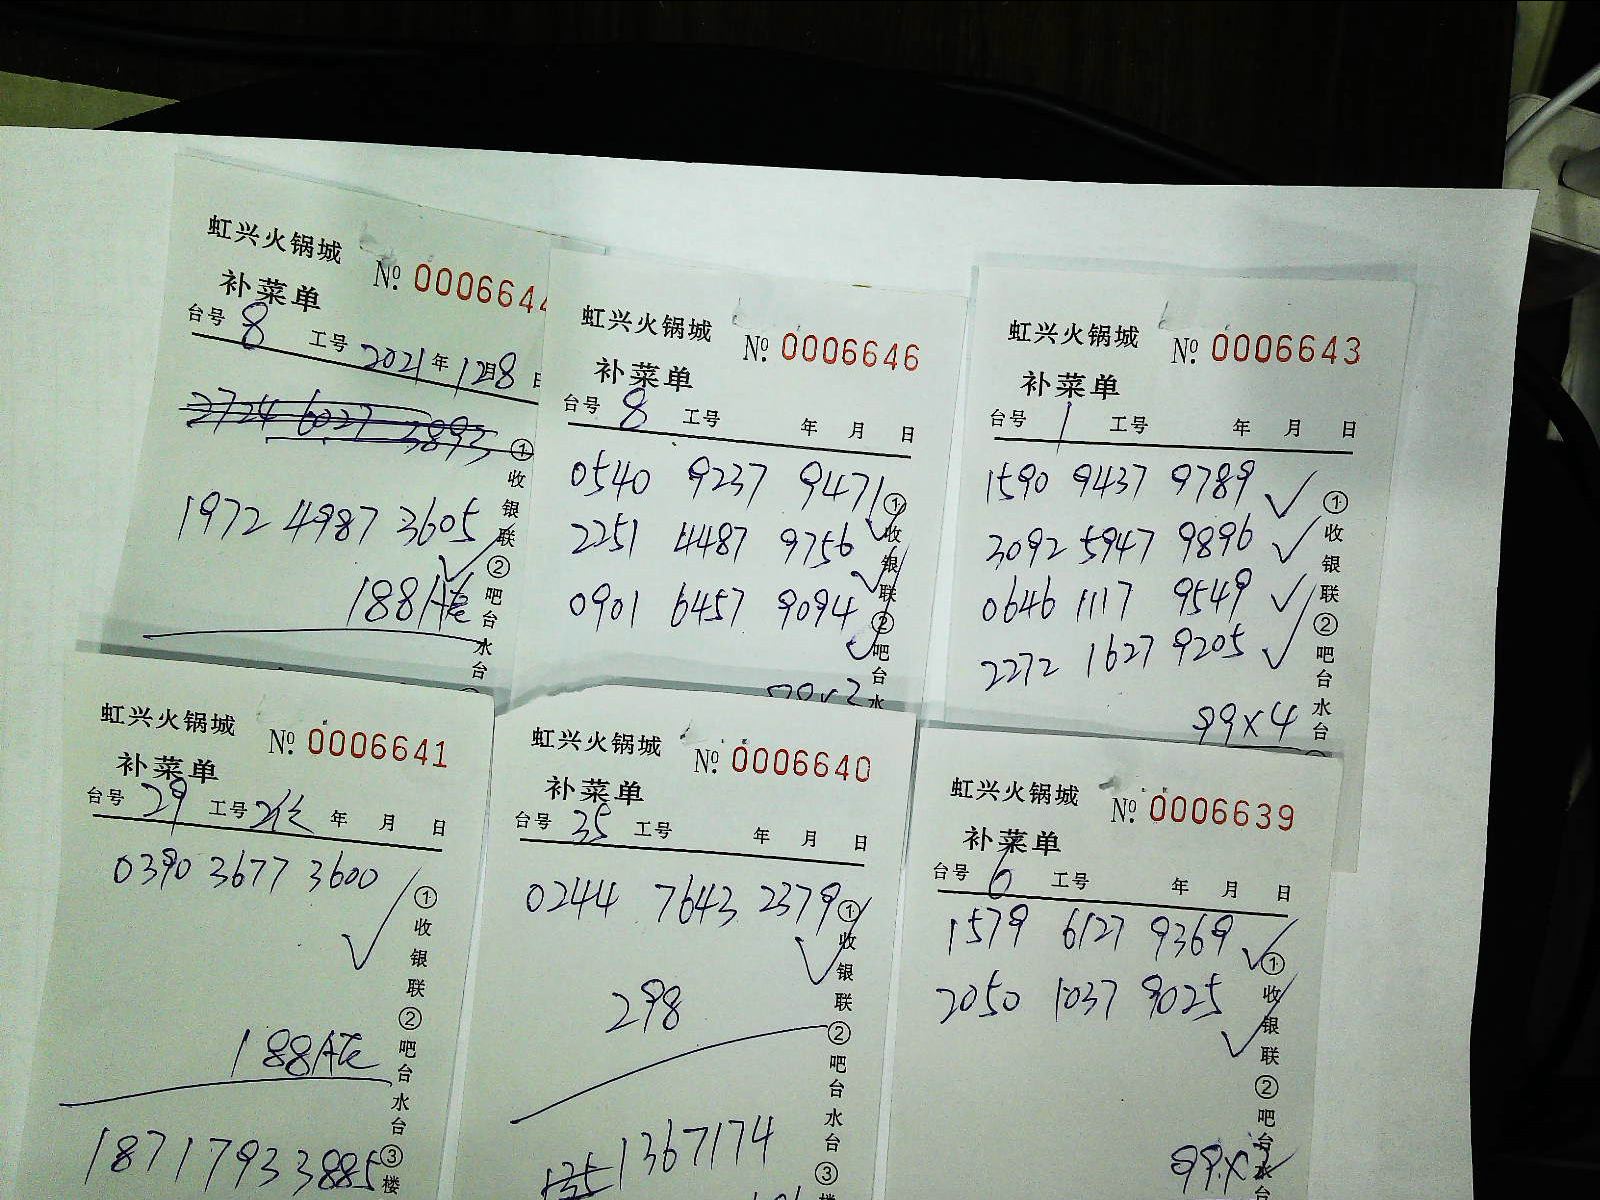 虹兴火锅城
№ 0006644
补菜单
台号 8 工号 2021年12月8日
2724 6027 3893
1972 4987 3605
188
①收银联②吧台水台
虹兴火锅城
№ 0006646
补菜单
台号 8 工号 年 月 日
0540 9237 9471
2251 4487 9756
0901 6457 9094
①收银联②吧台水
虹兴火锅城
№ 0006643
补菜单
台号 1 工号 年 月 日
1590 9437 9789
3092 5947 9896
0646 1117 9549
2272 1627 9205
99×4
①收银联②吧台水台
虹兴火锅城
№ 0006641
补菜单
台号 29 工号 年 月 日
0390 3677 3600
188
18717933885
①收银联②吧台水台③楼
虹兴火锅城
№ 0006640
补菜单
台号 35 工号 年 月 日
0244 7643 2379
298
1367174
135
①收银联②吧台水台③楼
虹兴火锅城
№ 0006639
补菜单
台号 6 工号 年 月 日
1579 6127 9369
2050 1037 9025
99×
①收银联②吧台水台